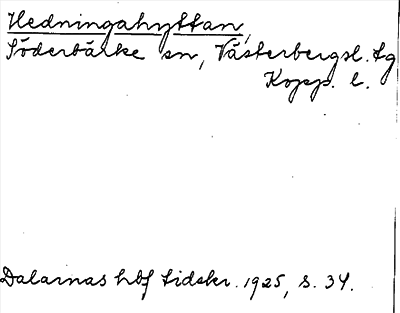 Hedningahyttan,
Söderbärke sn, Västerbergsl. tg
Kopp. l.
Dalarnas hbf tidskr. 1925, s. 34.